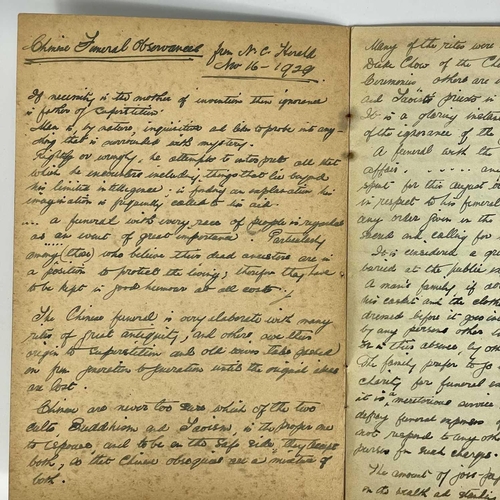 Chinese Funeral Observances from N. C. Herald
Nov 16 - 1929
If necessity is the mother of invention then ignorance
is father of superstition.
Man is, by nature, inquisitive and likes to probe into any-
thing that is surrounded with mystery.
Rightly or wrongly, he attempts to interpret all that
which he encounters including things that lie beyond
his limited intelligence; is finding an explanation his
imagination is frequently called to his aid.
... a funeral with every race of people is regarded
as an event of great importance. Particularly
among (those) who believe their dead ancestors are in
a position to protect the living; therefore they have
to be kept in good humour at all costs.
The Chinese funeral is very elaborate with many
rites of great antiquity, and others, owe their
origin to superstition and old passed
on from generation to generation until the original ideas
are lost.
Chinese are never too sure which of the two
cults Buddhism and Taoism, is the proper one
to espouse, and to be on the safe side they accept
both, so that Chinese obsequies are a mixture of
both.
Many of the rites were
Duke Chow of the Ch
Ceremonies others are
and Taoist priests in
It is a glaring
of the ignorance of the
A funeral with the
affair, ..... and
spent for this august
is, respect to his funeral
any order given in the
and calling for
It is considered a
buried at the public
A man's family, if
his casket and the
dressed before it goes into
by any persons other
or in this absence, by
the family prefer to go
charity for funeral
it is a meritorious service
defray funeral expenses of
not respond to any other
purses for such charges.
The amount of joss-pa